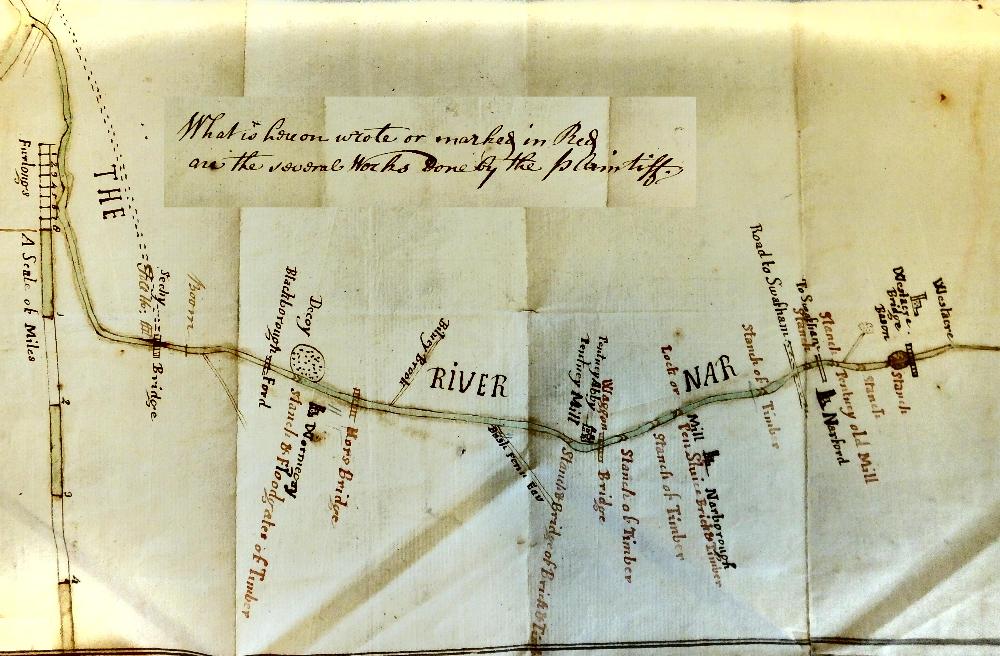 What is hereon wrote or marked in Red
are the several Works Done by the Plaintiff.
THE
RIVER
NAR
Furlongs
A Scale of Miles
1
2
3
4
Sechy
Bridge
Boom
Blackborough Ford
Decoy
Wormegay
Stanch & Flodgates of Timber
Hors Bridge
Bilney Brook
Pentney Abby
Pentney Mill
Waggon
Bridge
Stanch & Bridge of Brick &
Stanch of Timber
Lock or
Pen Sluice Brick & Timber
Mill
Narborough
Stanch of Timber
Stanch of
Timber
Road to Swafham
To Swafham
Stanch
Stanch
Narford
Pentney old Mill
Stanch
Westacre
Bridge
Bason
Stanch
Westacre